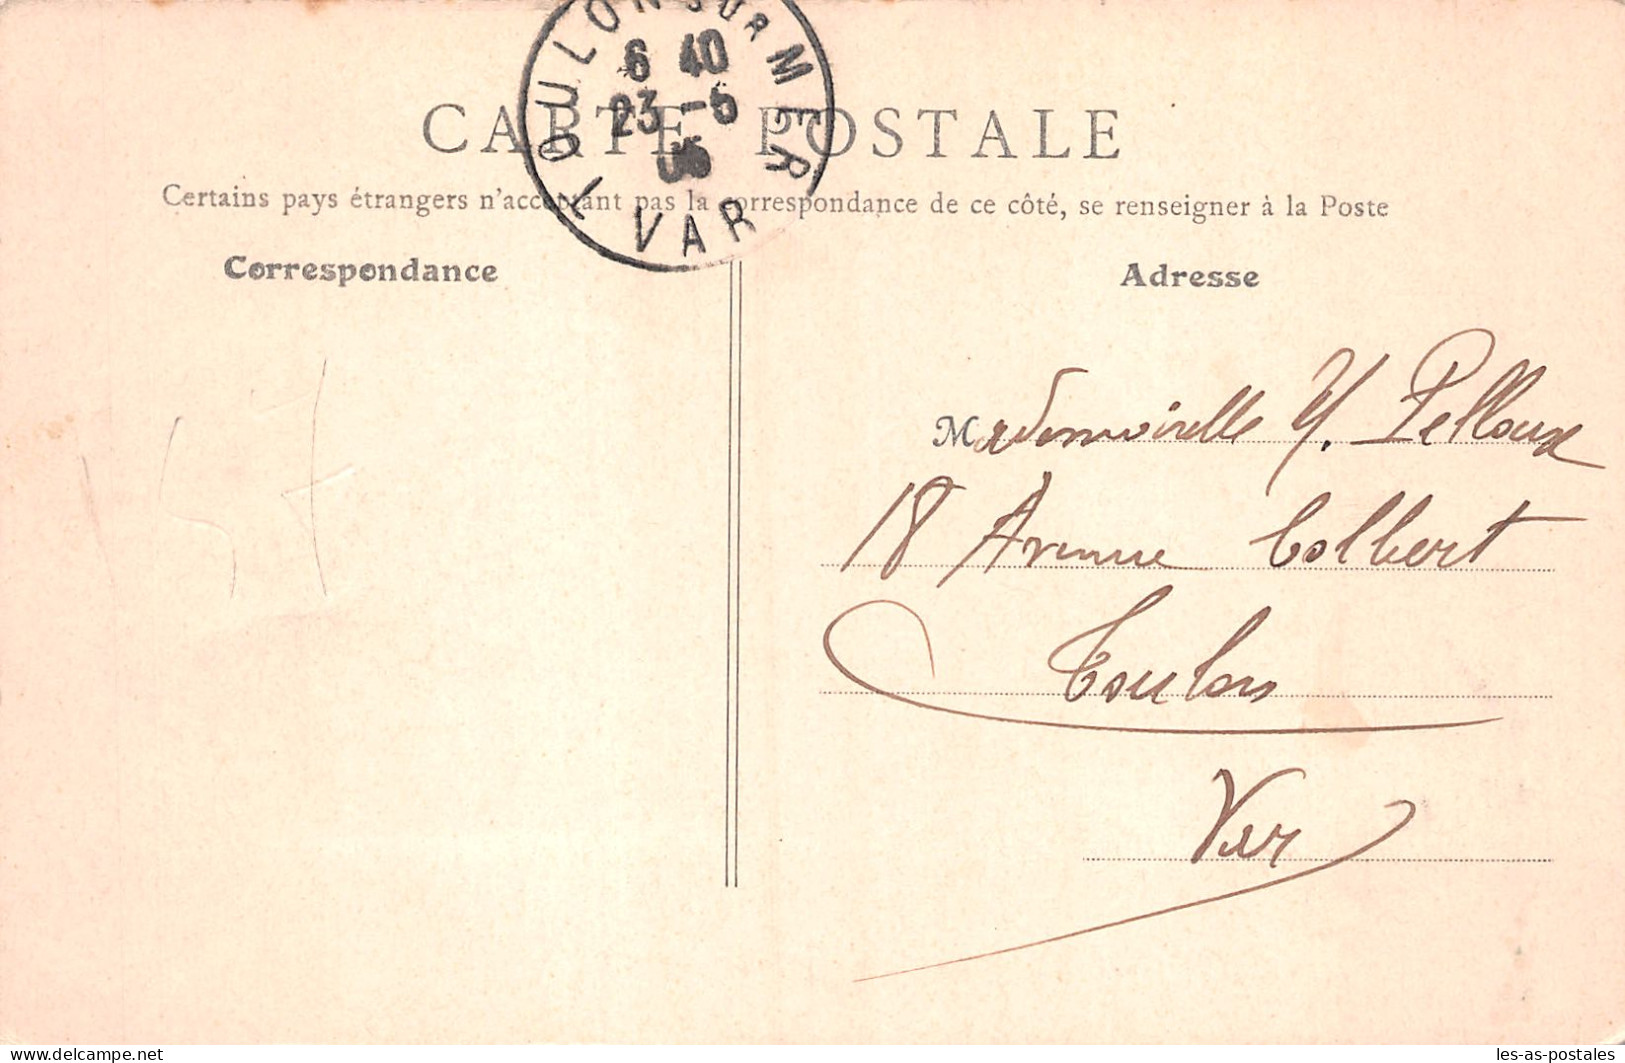 TOULON SUR MER
6 40
23 -5
05
VAR
CARTE POSTALE
Certains pays étrangers n'acceptant pas la correspondance de ce côté, se renseigner à la Poste
Correspondance
Adresse
Mademoiselle Y. Pelloux
18 Avenue Colbert
Toulon
Var
delcampe.net
les-as-postales